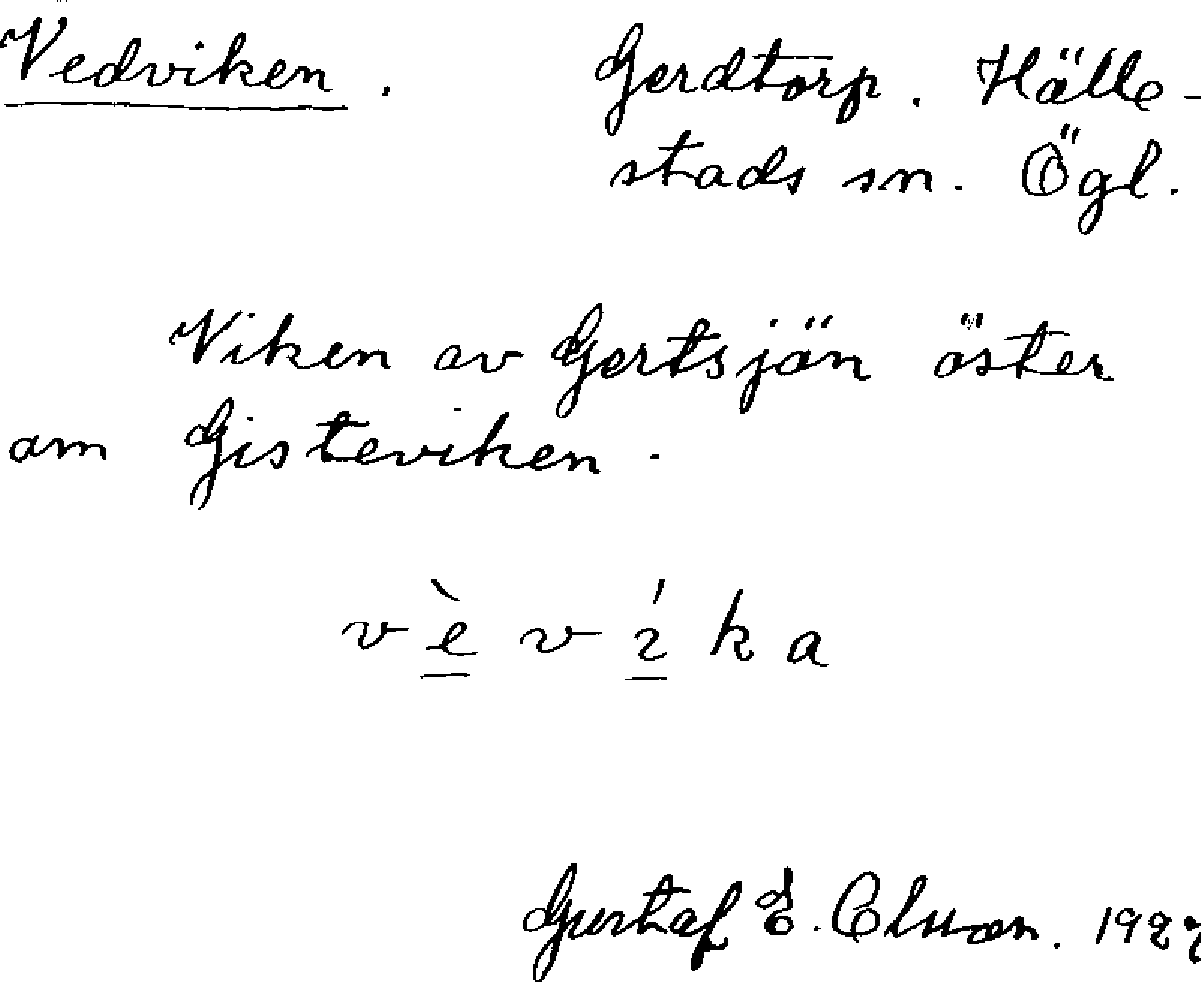 Vedviken. Gerdtorp. Hälle-
stads sn. Ögl.
Viken av Gertsjön öster
om Gisteviken.
vè̲ ví̲ka
Gustaf E. 192